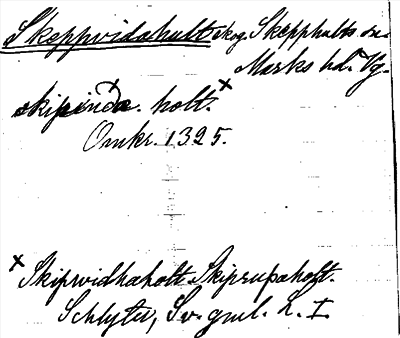 Skeppvidahult skog Skepphults sn.
Marks hd. Vg.
skipinda. holt. x
Omkr. 1325.
x Skipvidhaholt Skiprupaholt.
Schlyter, Sv. gml. L. I